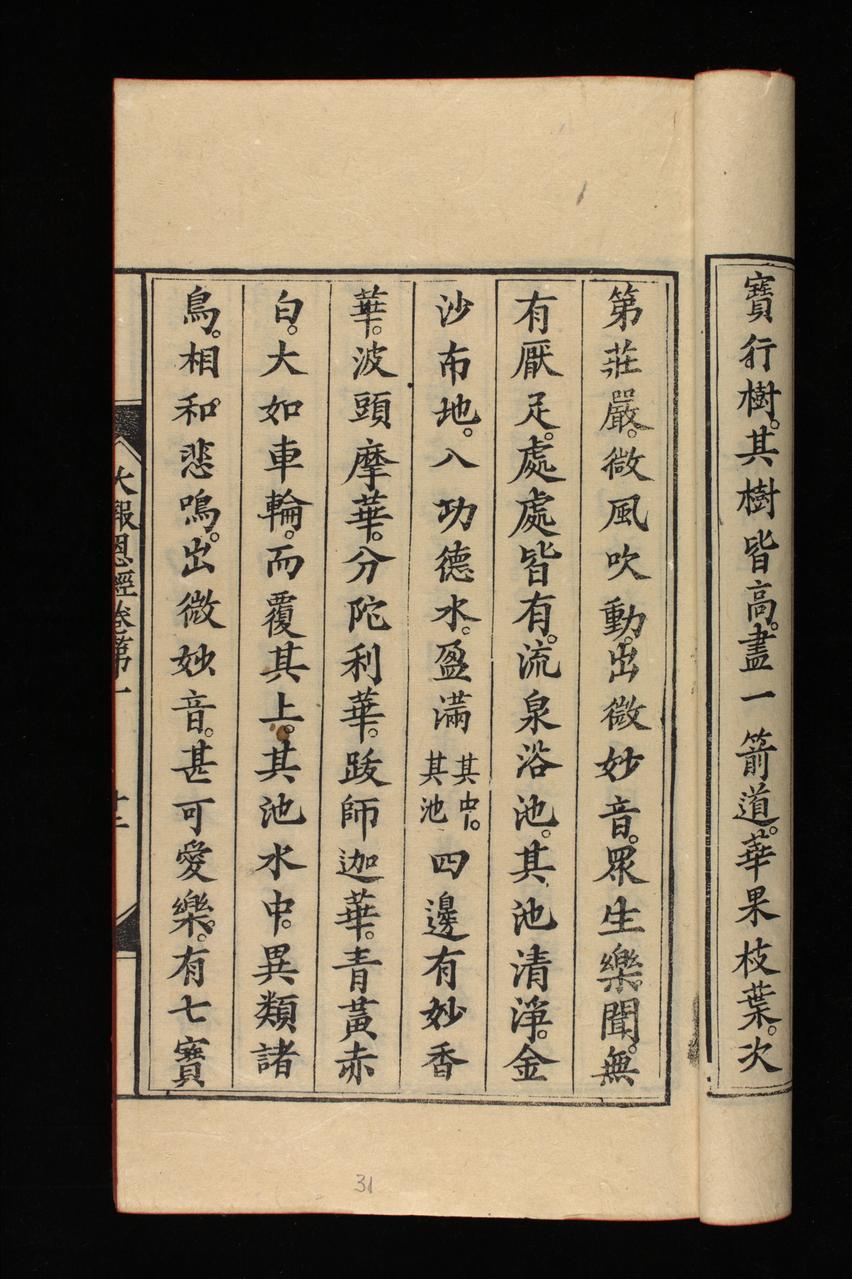 寶行樹。其樹皆高。盡一箭道。華果枝葉。次
第莊嚴。微風吹動。出微妙音。眾生樂聞。無
有厭足。處處皆有。流泉浴池。其池清淨。金
沙布地。八功德水。盈滿其中。其池四邊有妙香
華。波頭摩華。分陀利華。跋師迦華。青黃赤
白。大如車輪。而覆其上。其池水中。異類諸
鳥。相和悲鳴。出微妙音。甚可愛樂。有七寶
大報恩經卷第一
31